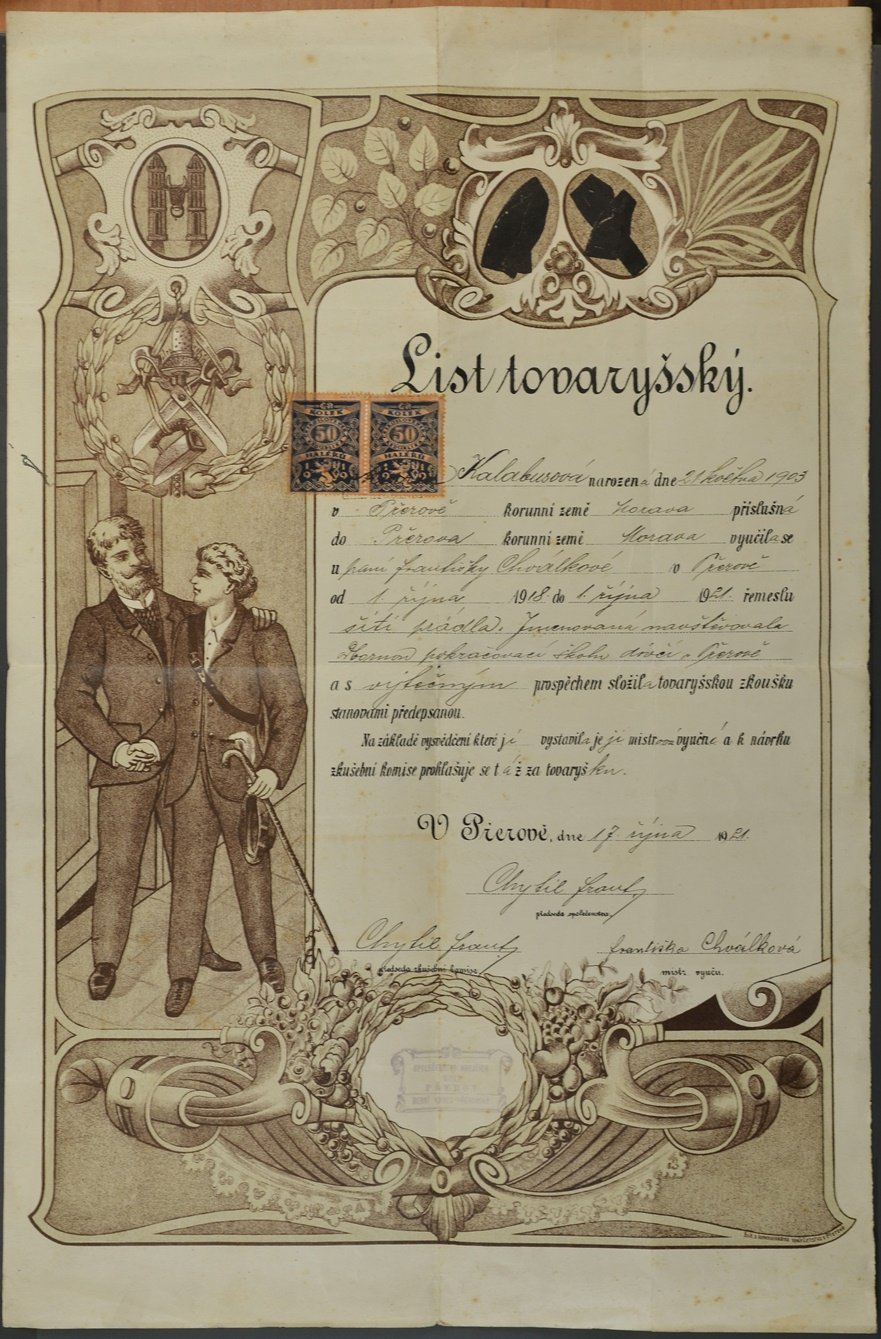 List tovaryšský.
KOLEK KOLEK
50 50
HALÉŘŮ HALÉŘŮ
1919 1919
Kalabusová narozená dne 21 května 1903
v Přerově korunní země Morava příslušná
do Přerova korunní země Morava vyučila se
u paní Františky Chválkové v Přerově
od 1. října 1918. do 1. října 1921. řemeslu
šití prádla. Jmenovaná navštěvovala
odbornou pokračovací školu dívčí v Přerově
a s výtečným prospěchem složila tovaryšskou zkoušku
stanovami předepsanou.
Na základě vysvědčení které jí vystavila je jí mistrová výučné a k návrhu
zkušební komise prohlašuje se táž za tovaryšku.
V Přerově, dne 17. října 1921.
Chytil Frant
předseda společenstva.
Chytil Frant Františka Chválková
předseda zkušební komise. mistr vyuču.
PŘEROV